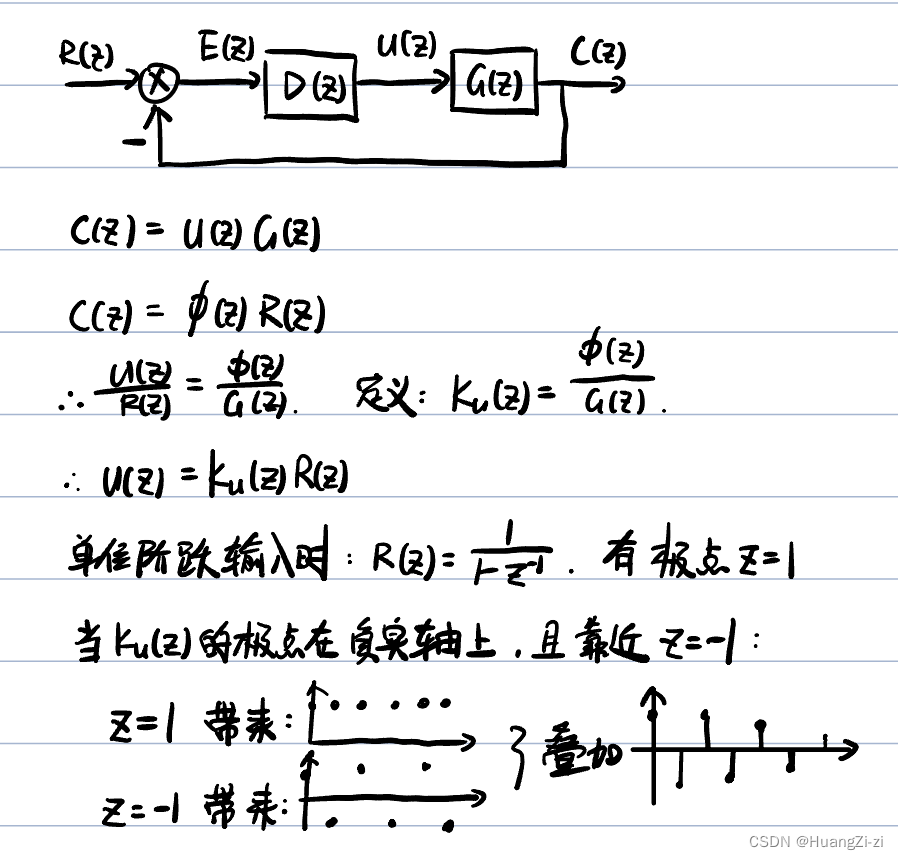 R(z) E(z) D(z) U(z) G(z) C(z)
−
C(z) = U(z) G(z)
C(z) = ϕ(z) R(z)
∴ U(z)/R(z) = ϕ(z)/G(z). 定义: Ku(z) = ϕ(z)/G(z).
∴ U(z) = Ku(z) R(z)
单位阶跃输入时: R(z) = 1/(1-z⁻¹). 有极点 z=1
当 Ku(z) 的极点在负实轴上, 且靠近 z=-1:
z=1 带来:
} 叠加
z=-1 带来:
CSDN @HuangZi-zi